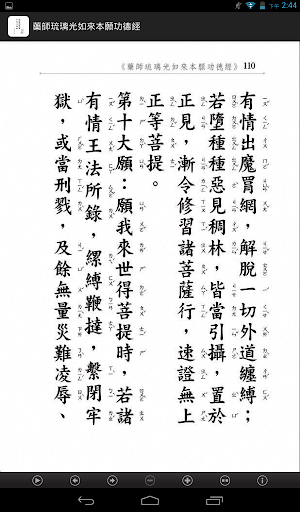 下午 2:44
藥師琉璃光如來本願功德經
《藥師琉璃光如來本願功德經》 110
有情出魔罥網，解脫一切外道纏縛；
若墮種種惡見稠林，皆當引攝，置於
正見，漸令修習諸菩薩行，速證無上
正等菩提。
第十大願：願我來世得菩提時，若諸
有情王法所錄，縲縛鞭撻，繫閉牢
獄，或當刑戮，及餘無量災難凌辱、